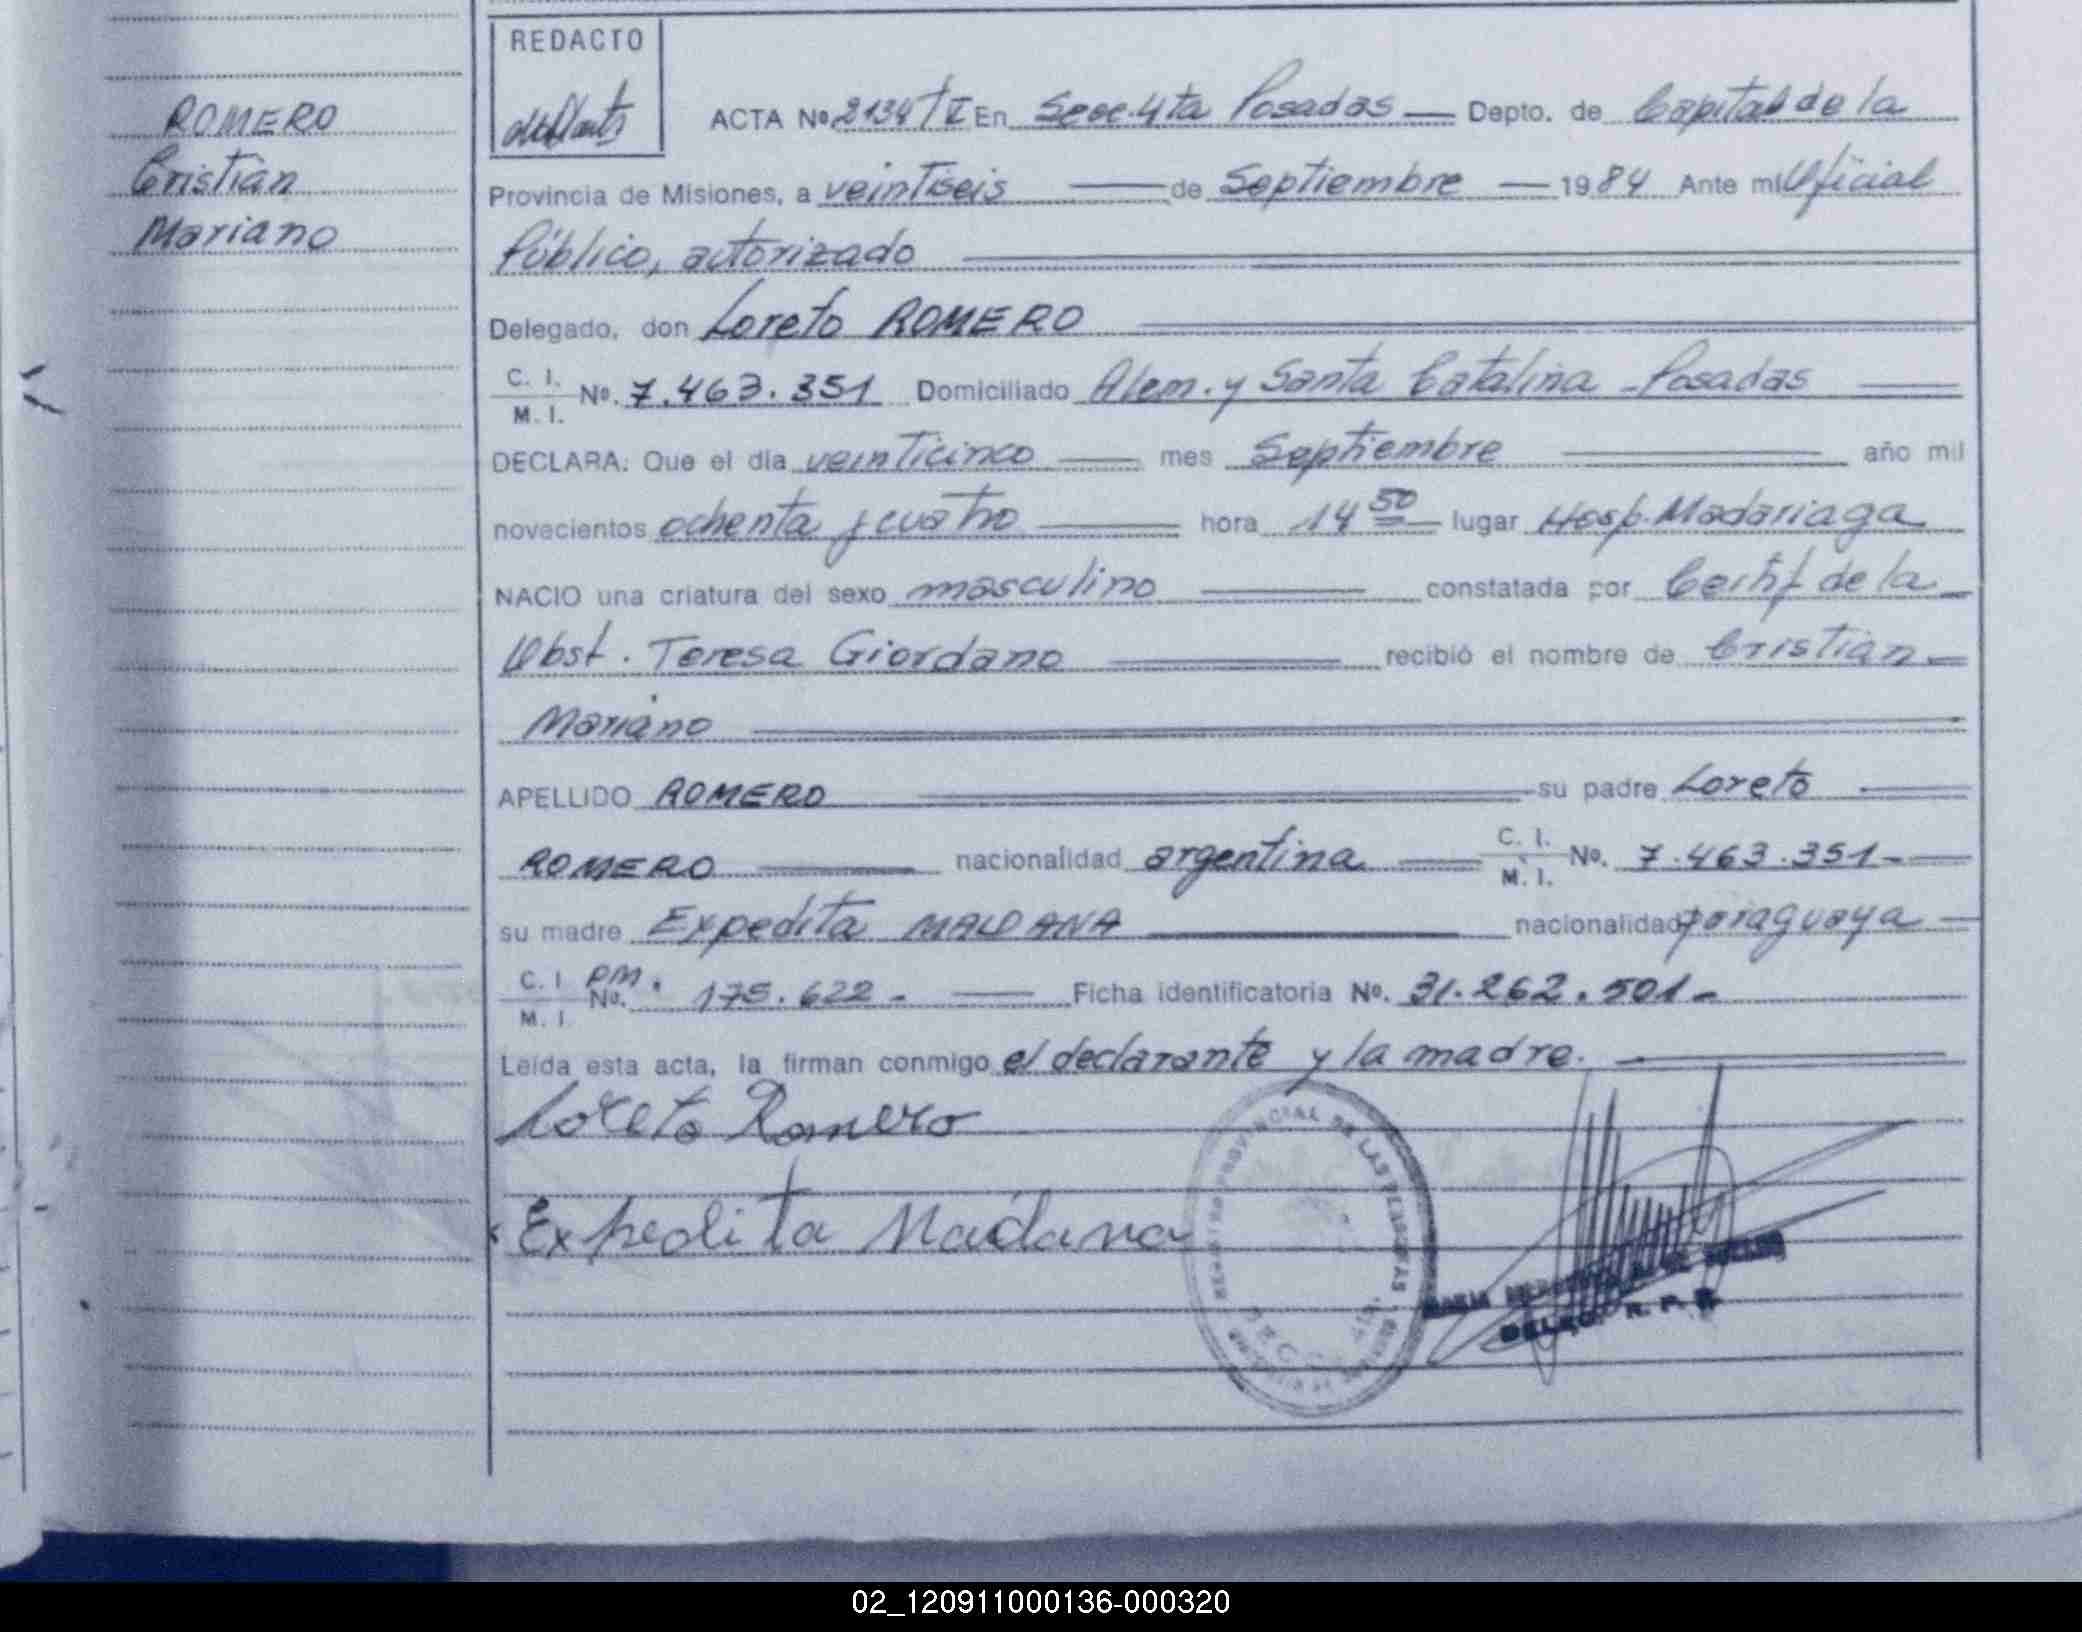 REDACTO
ROMERO
Cristian
Mariano
ACTA Nº 2134 T V En Secc. 4ta Posadas — Depto. de Capital de la
Provincia de Misiones, a veintiseis — de Septiembre — 1984 Ante mi Oficial
Público, autorizado
Delegado, don Loreto ROMERO
C. I.
M. I. Nº. 7.463.351 Domiciliado Alem. y Santa Catalina - Posadas
DECLARA: Que el día veinticinco — mes Septiembre — año mil
novecientos ochenta y cuatro — hora 14 50 lugar Hosp. Madariaga
NACIO una criatura del sexo masculino — constatada por Certif de la
Obst. Teresa Giordano — recibió el nombre de Cristian
Mariano
APELLIDO ROMERO — su padre Loreto
ROMERO — nacionalidad argentina — C. I. M. I. Nº. 7.463.351-
su madre Expedita MALDANA — nacionalidad paraguaya
C. I. M. I. PM. Nº. 175.622. — Ficha identificatoria Nº. 31.262.501-
Leída esta acta, la firman conmigo el declarante y la madre.
Loreto Romero
Expedita Maidana
PROVINCIAL DE LAS PERSONAS
MARIA
DELEG. R. P. P.
02_120911000136-000320